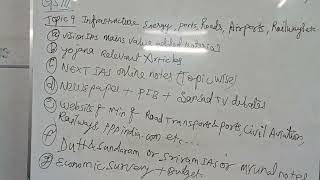 GS III
Topic 9 Infrastructure Energy, ports, Roads, Airports, Railways etc
a) vision IAS mains value added material
b) yojana Relevant Articles
c) NEXT IAS online notes (Topic wise)
d) Newspaper + PIB + Sansad TV debates
e) website of min of Road Transport & ports, Civil Aviation,
Railways PPPindia.com etc...
f) Dutt & Sundaram or Sriram IAS or Mrunal notes
g) Economic Survey + Budget.